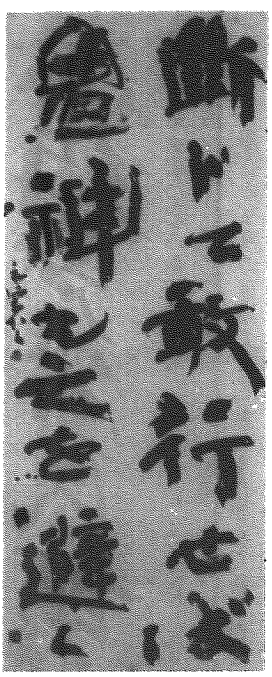 断じて敢行せば
鬼神も之を避く